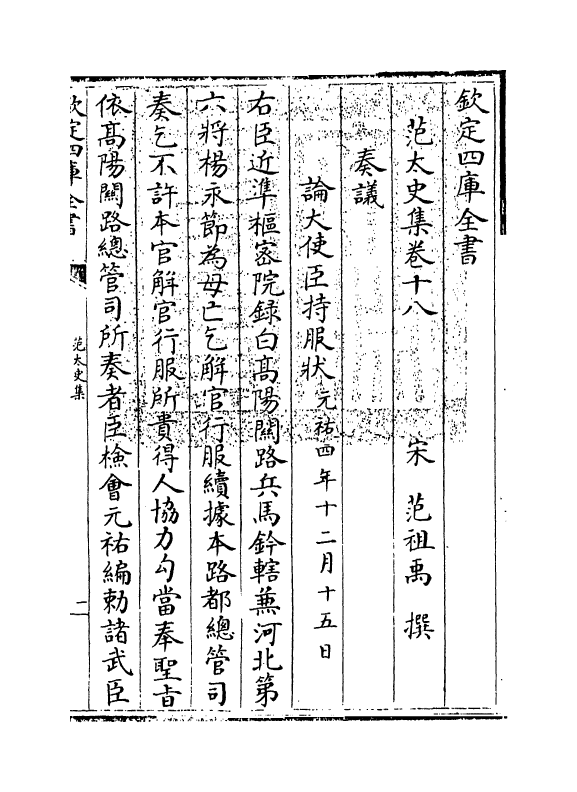 欽定四庫全書
范太史集卷十八　宋　范祖禹　撰
奏議
論大使臣持服狀元祐四年十二月十五日
右臣近準樞宻院録白髙陽闗路兵馬鈐轄兼河北第
六將楊永節為母亡乞解官行服續據本路都總管司
奏乞不許本官解官行服所貴得人協力勾當奉聖㫖
依髙陽闗路總管司所奏者臣檢會元祐編勅諸武臣
欽定四庫全書
范太史集